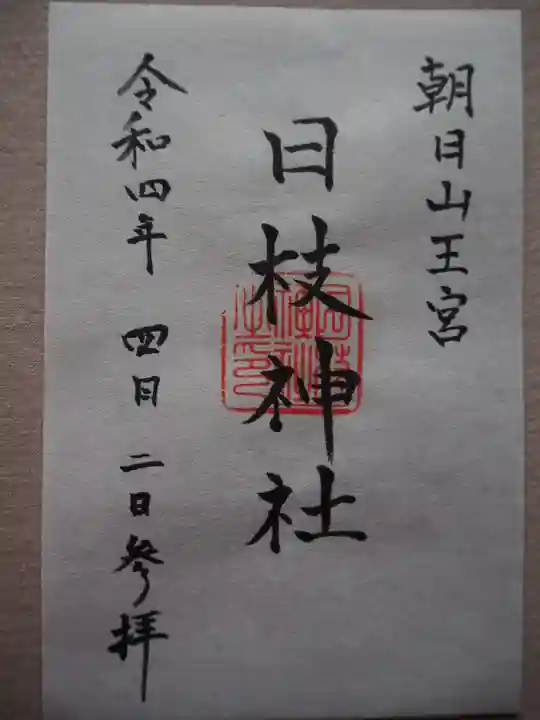 朝日山王宮
日枝神社
令和四年 四月 二日參拝